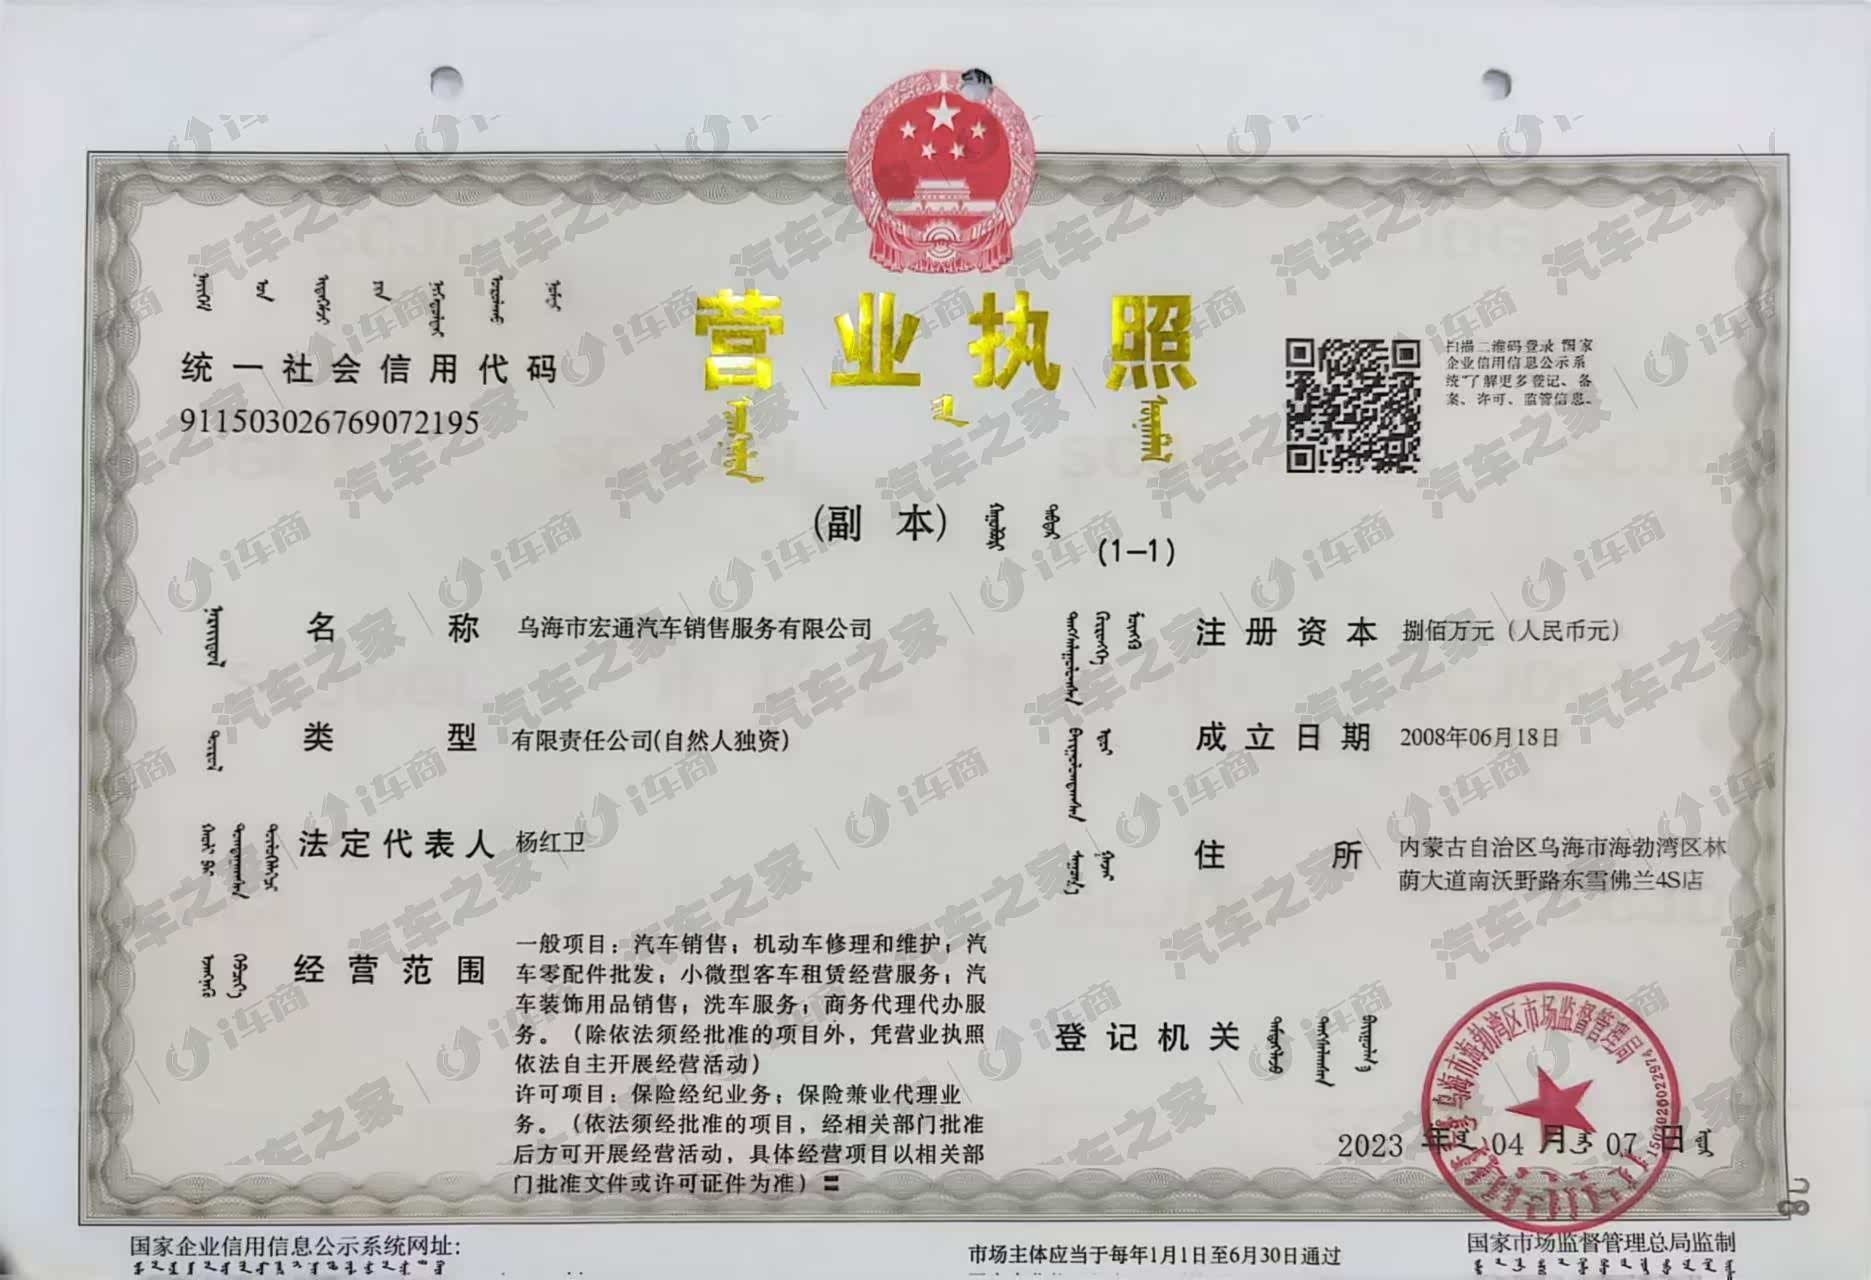 统一社会信用代码
911503026769072195
营业执照
(副 本)
(1-1)
扫描二维码登录"国家
企业信用信息公示系
统"了解更多登记、备
案、许可、监管信息。
名 称 乌海市宏通汽车销售服务有限公司
类 型 有限责任公司(自然人独资)
法定代表人 杨红卫
经营范围 一般项目：汽车销售；机动车修理和维护；汽
车零配件批发；小微型客车租赁经营服务；汽
车装饰用品销售；洗车服务；商务代理代办服
务。（除依法须经批准的项目外，凭营业执照
依法自主开展经营活动）
许可项目：保险经纪业务；保险兼业代理业
务。（依法须经批准的项目，经相关部门批准
后方可开展经营活动，具体经营项目以相关部
门批准文件或许可证件为准）〓
注册资本 捌佰万元（人民币元）
成立日期 2008年06月18日
住 所 内蒙古自治区乌海市海勃湾区林
荫大道南沃野路东雪佛兰4S店
登记机关
乌海市海勃湾区市场监督管理局
1503020022974
2023 年 04 月 07 日
国家企业信用信息公示系统网址:
市场主体应当于每年1月1日至6月30日通过
国家市场监督管理总局监制
汽车之家 | i车商